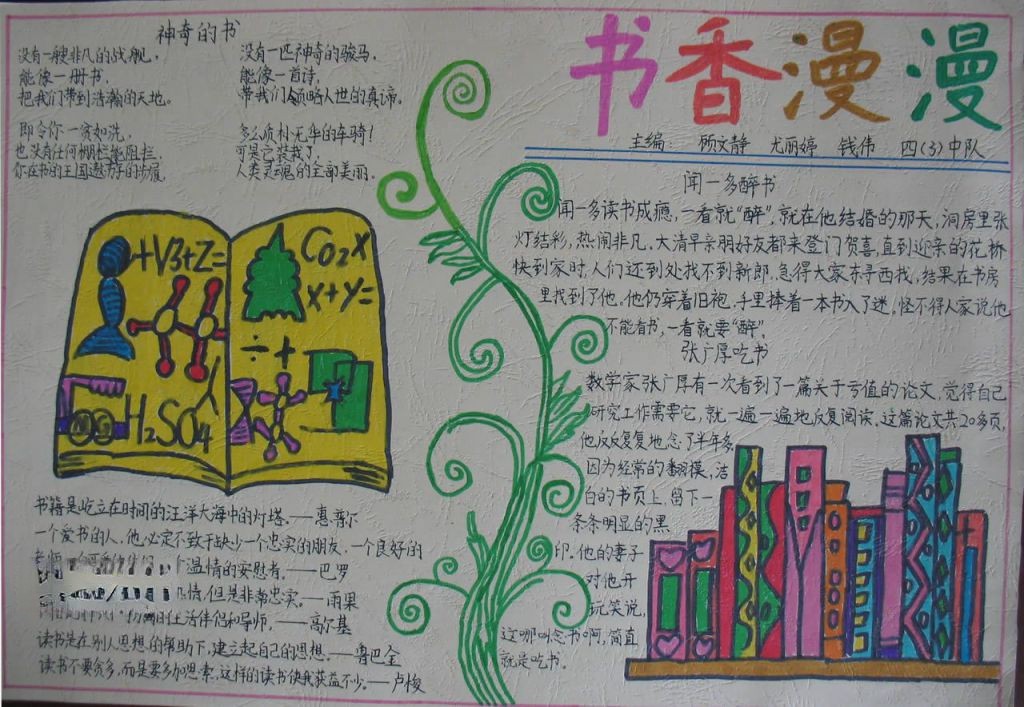 书香漫漫
主编 顾文静 尤丽婷 钱伟 四(3)中队
神奇的书
没有一艘非凡的战舰，
能像一册书，
把我们带到浩瀚的天地。
没有一匹神奇的骏马，
能像一首诗，
带我们领略人世的真谛。
即令你一贫如洗，
也没有任何栅栏能阻拦
你在书的王国遨游的步履
多么质朴无华的车骑！
可是它装载了
人类灵魂的全部美丽。
+√3+Z=
H₂SO₄
CO₂X
X+Y=
÷+
书籍是屹立在时间的汪洋大海中的灯塔。——惠普尔
一个爱书的人，他必定不致于缺少一个忠实的朋友，一个良好的
老师
温情的安慰者。——巴罗
情，但是非常忠实。——雨果
生活伴侣和导师。——高尔基
读书是在别人思想的帮助下，建立起自己的思想。——鲁巴金
读书不要贪多，而是要多加思索，这样的读书使我获益不少。——卢梭
闻一多醉书
闻一多读书成瘾，一看就“醉”，就在他结婚的那天，洞房里张
灯结彩，热闹非凡。大清早亲朋好友都来登门贺喜，直到迎亲的花桥
快到家时，人们还到处找不到新郎。急得大家东寻西找，结果在书房
里找到了他。他仍穿着旧袍，手里捧着一本书入了迷。怪不得人家说他
不能看书，一看就要“醉”。
张广厚吃书
数学家张广厚有一次看到了一篇关于亏值的论文，觉得自己
研究工作需要它，就一遍一遍地反复阅读。这篇论文共20多页，
他反反复复地念了半年多。
因为经常的翻摸，洁
白的书页上，留下一
条条明显的黑
印。他的妻子
对他开
玩笑说，
这哪叫念书啊，简直
就是吃书。